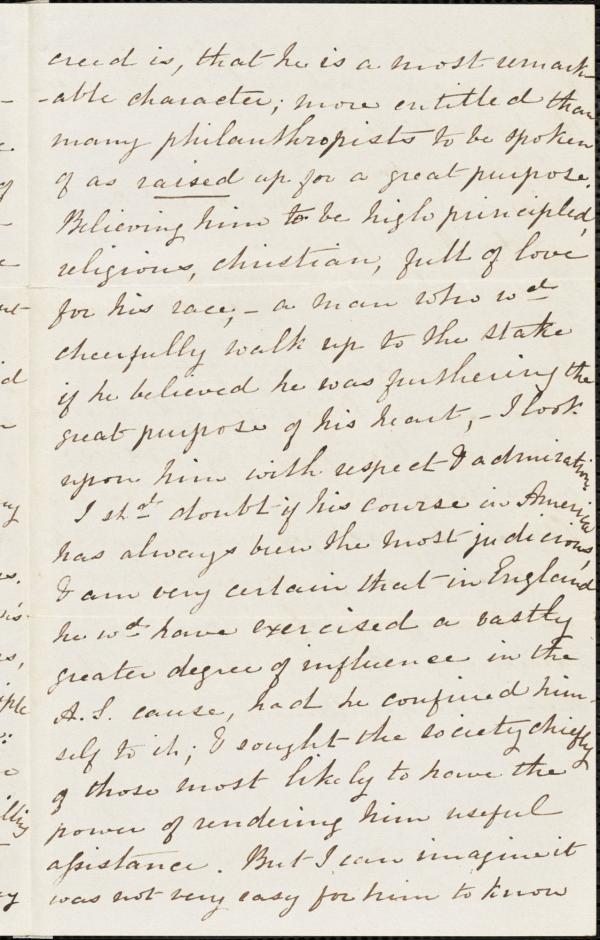 creed is, that he is a most remark-
-able character; more entitled than
many philanthropists to be spoken
of as raised up for a great purpose.
Believing him to be high principled,
religious, christian, full of love
for his race, - a man who wd
cheerfully walk up to the stake
if he believed he was furthering the
great purpose of his heart, - I look
upon him with respect & admiration.
I shd doubt if his course in America
has always been the most judicious,
& am very certain that in England
he wd have exercised a vastly
greater degree of influence in the
A.S. cause, had he confined him-
self to it; & sought the society chiefly
of those most likely to have the
power of rendering him useful
assistance. But I can imagine it
was not very easy for him to know